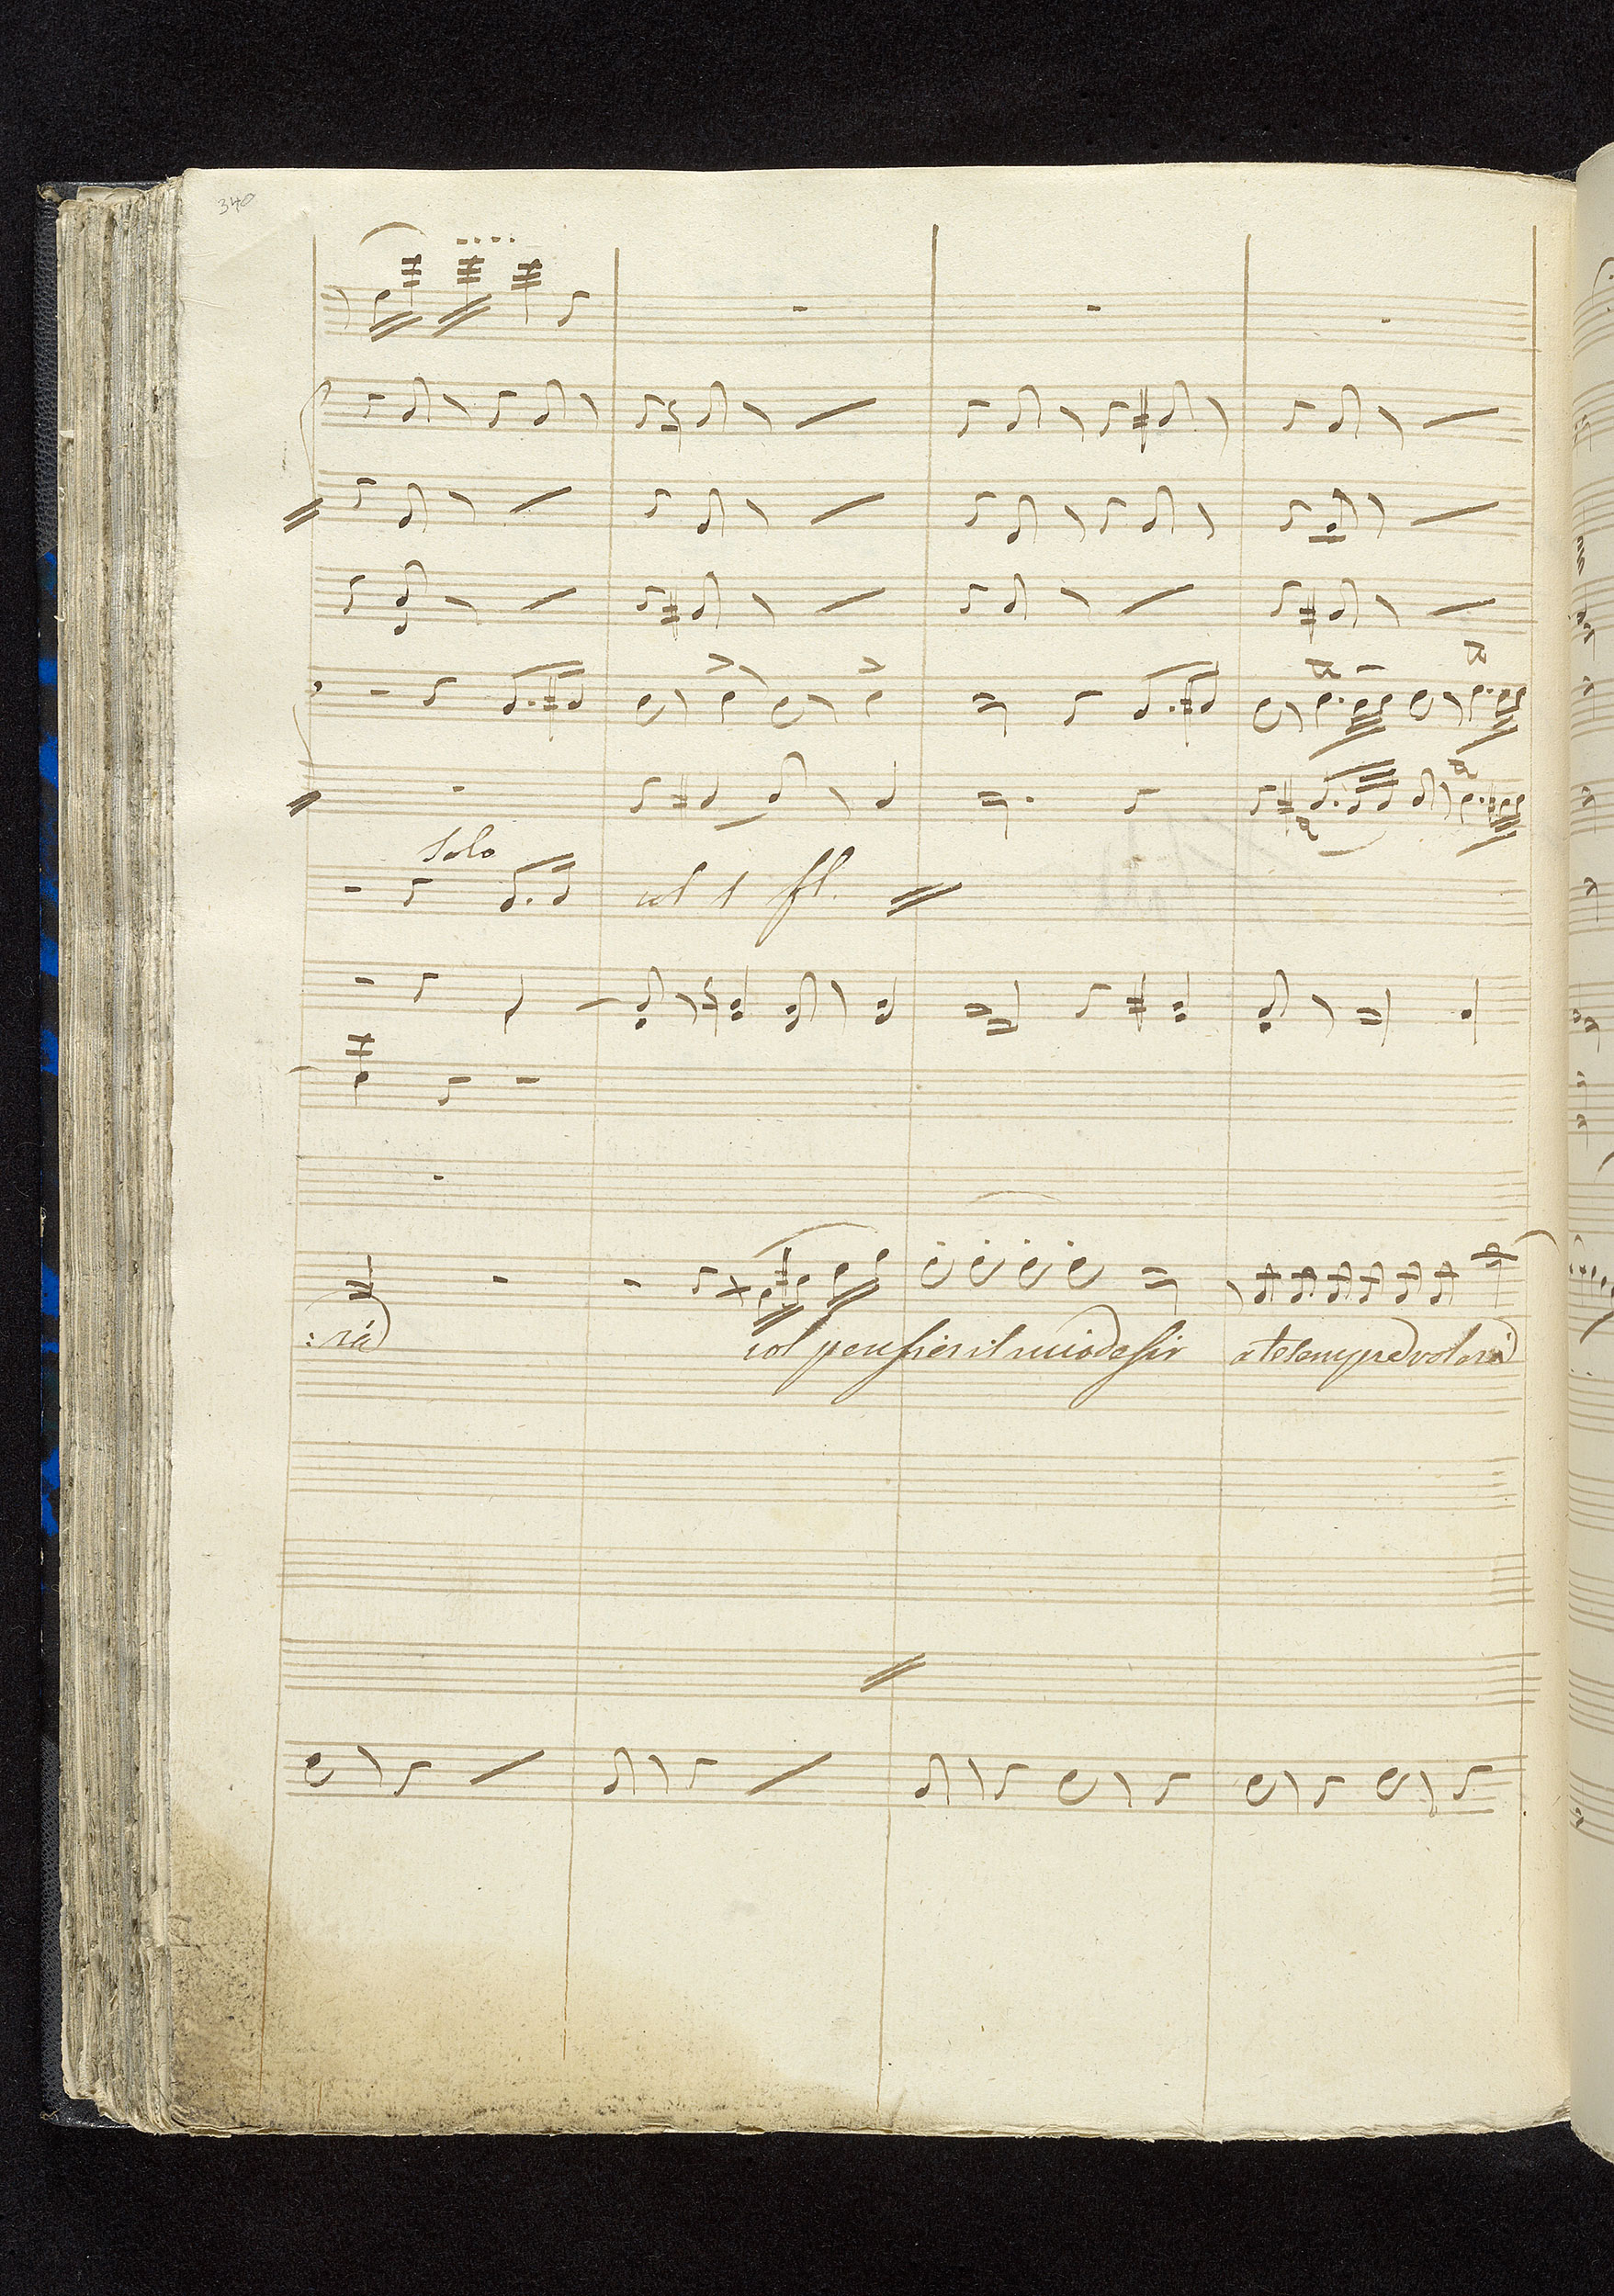 340
Solo
col 1 fl.
:rà col pensier il mio desir a te sempre volerà